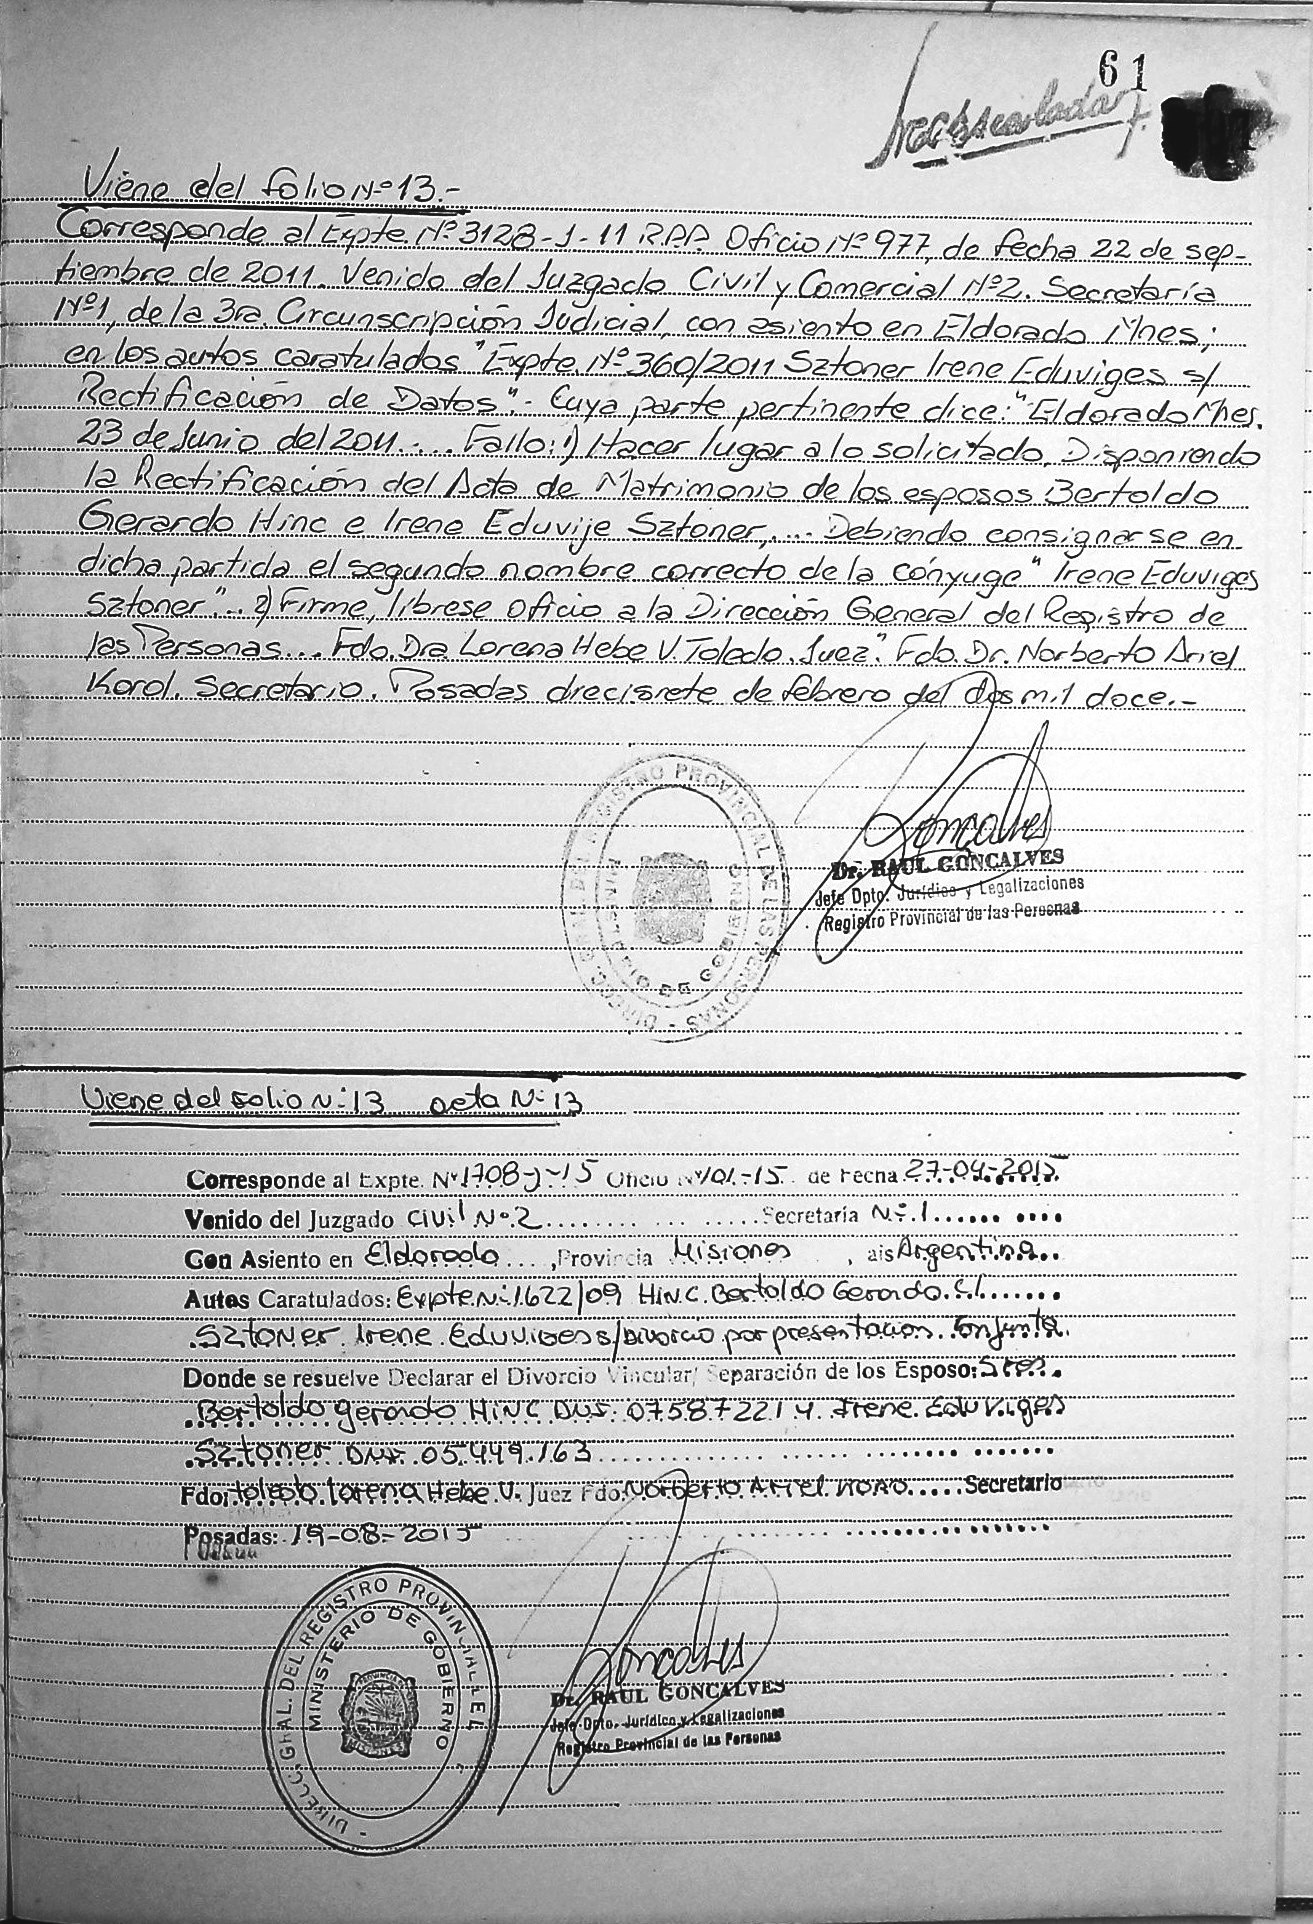 61
Viene del folio Nº 13.-
Corresponde al Expte. Nº 3128-J-11 R.P.P. Oficio Nº 977, de fecha 22 de sep-
tiembre de 2011. Venido del Juzgado Civil y Comercial Nº2. Secretaría
Nº1, de la 3ra. Circunscripción Judicial, con asiento en Eldorado Mnes;
en los autos caratulados "Expte. Nº 360/2011 Sztoner Irene Eduviges s/
Rectificación de Datos".- Cuya parte pertinente dice: "Eldorado Mnes.
23 de Junio del 2011..... Fallo: 1) Hacer lugar a lo solicitado, Disponiendo
la Rectificación del Acta de Matrimonio de los esposos Bertoldo
Gerardo Hinc e Irene Eduvije Sztoner,.... Debiendo consignarse en
dicha partida el segundo nombre correcto de la cónyuge "Irene Eduviges
Sztoner".. 2) Firme, líbrese oficio a la Dirección General del Registro de
las Personas... Fdo. Dra Lorena Hebe V. Toledo. Juez". Fdo. Dr. Norberto Ariel
Korol. Secretario. Posadas diecisiete de febrero del dos mil doce.-
DIRECC. GRAL. DEL REGISTRO PROVINCIAL DE LAS PERSONAS -
MINISTERIO DE GOBIERNO
Goncalves
Dr. RAUL GONCALVES
Jefe Dpto. Jurídico y Legalizaciones
Registro Provincial de las Personas
Viene del Folio Nº 13 acta Nº 13
Corresponde al Expte. Nº 1708-J-15 Oficio Nº 101-15 de Fecha 27-04-2015
Venido del Juzgado Civil Nº 2 Secretaría Nº 1
Con Asiento en Eldorado, Provincia Misiones, ais Argentina
Autos Caratulados: Expte Nº 1622/09 HINC Bertoldo Gerardo C/
Sztoner Irene Eduviges s/Divorcio por presentacion Conjunta.
Donde se resuelve Declarar el Divorcio Vincular/ Separación de los Esposo: Sres.
Bertoldo Gerardo HINC DNI. 07587221 y Irene Eduviges
Sztoner DNI. 05.449.163
Fdo: Toledo Lorena Hebe V. Juez Fdo. Norberto Ariel Secretario
Posadas: 19-08-2015
DIRECC. GRAL. DEL REGISTRO PROVINCIAL DE L
MINISTERIO DE GOBIERNO
PROVINCIA
MISIONES
Goncalves
Dr. RAUL GONCALVES
Jefe Dpto. Jurídico y Legalizaciones
Registro Provincial de las Personas